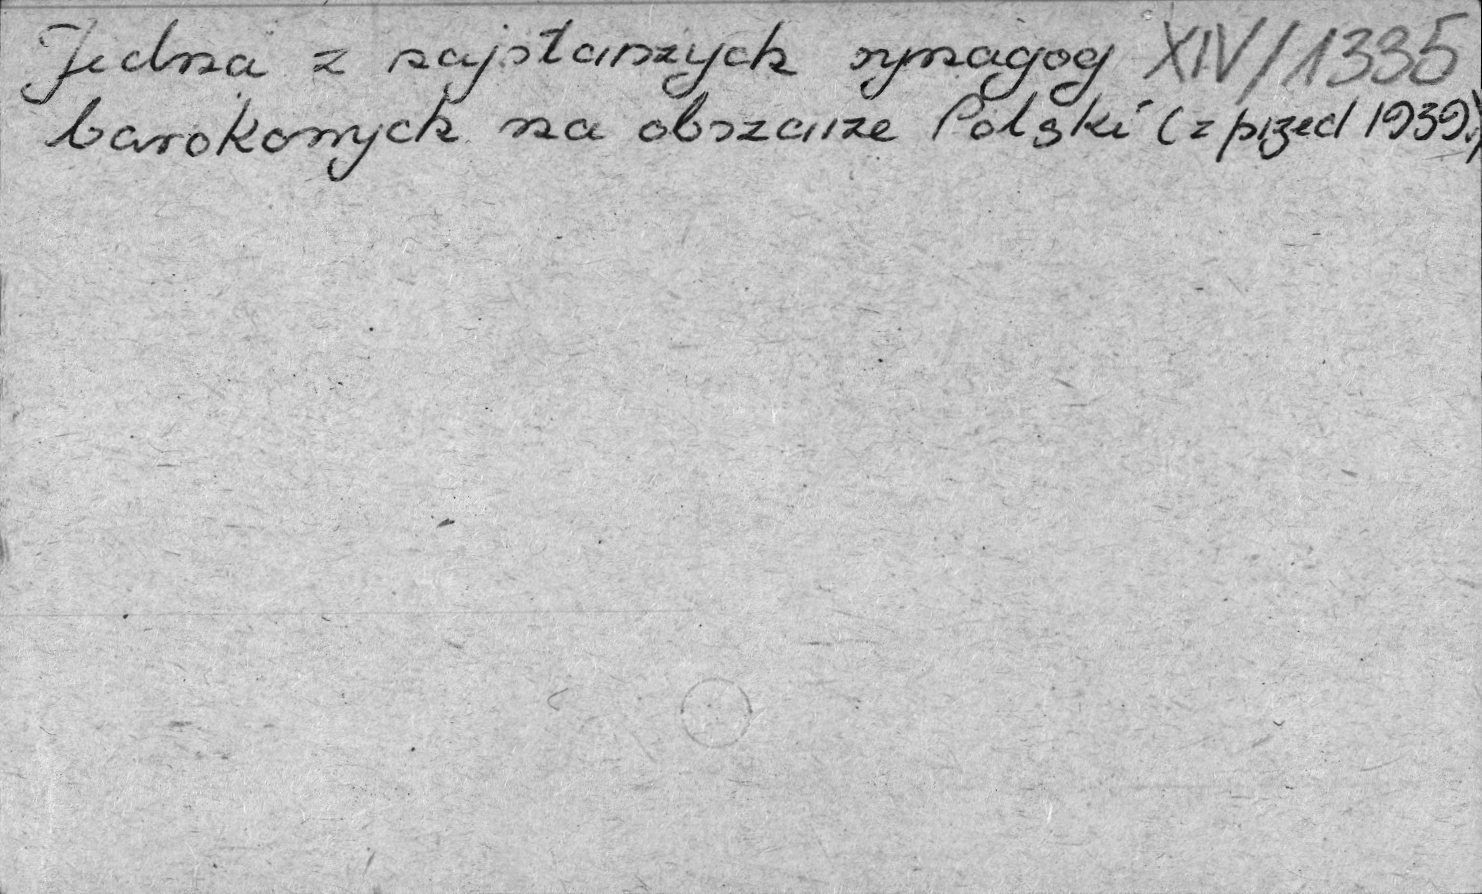 Jedna z najstarszych synagog XIV/1335
barokowych na obszarze Polski (z przed 1939.)